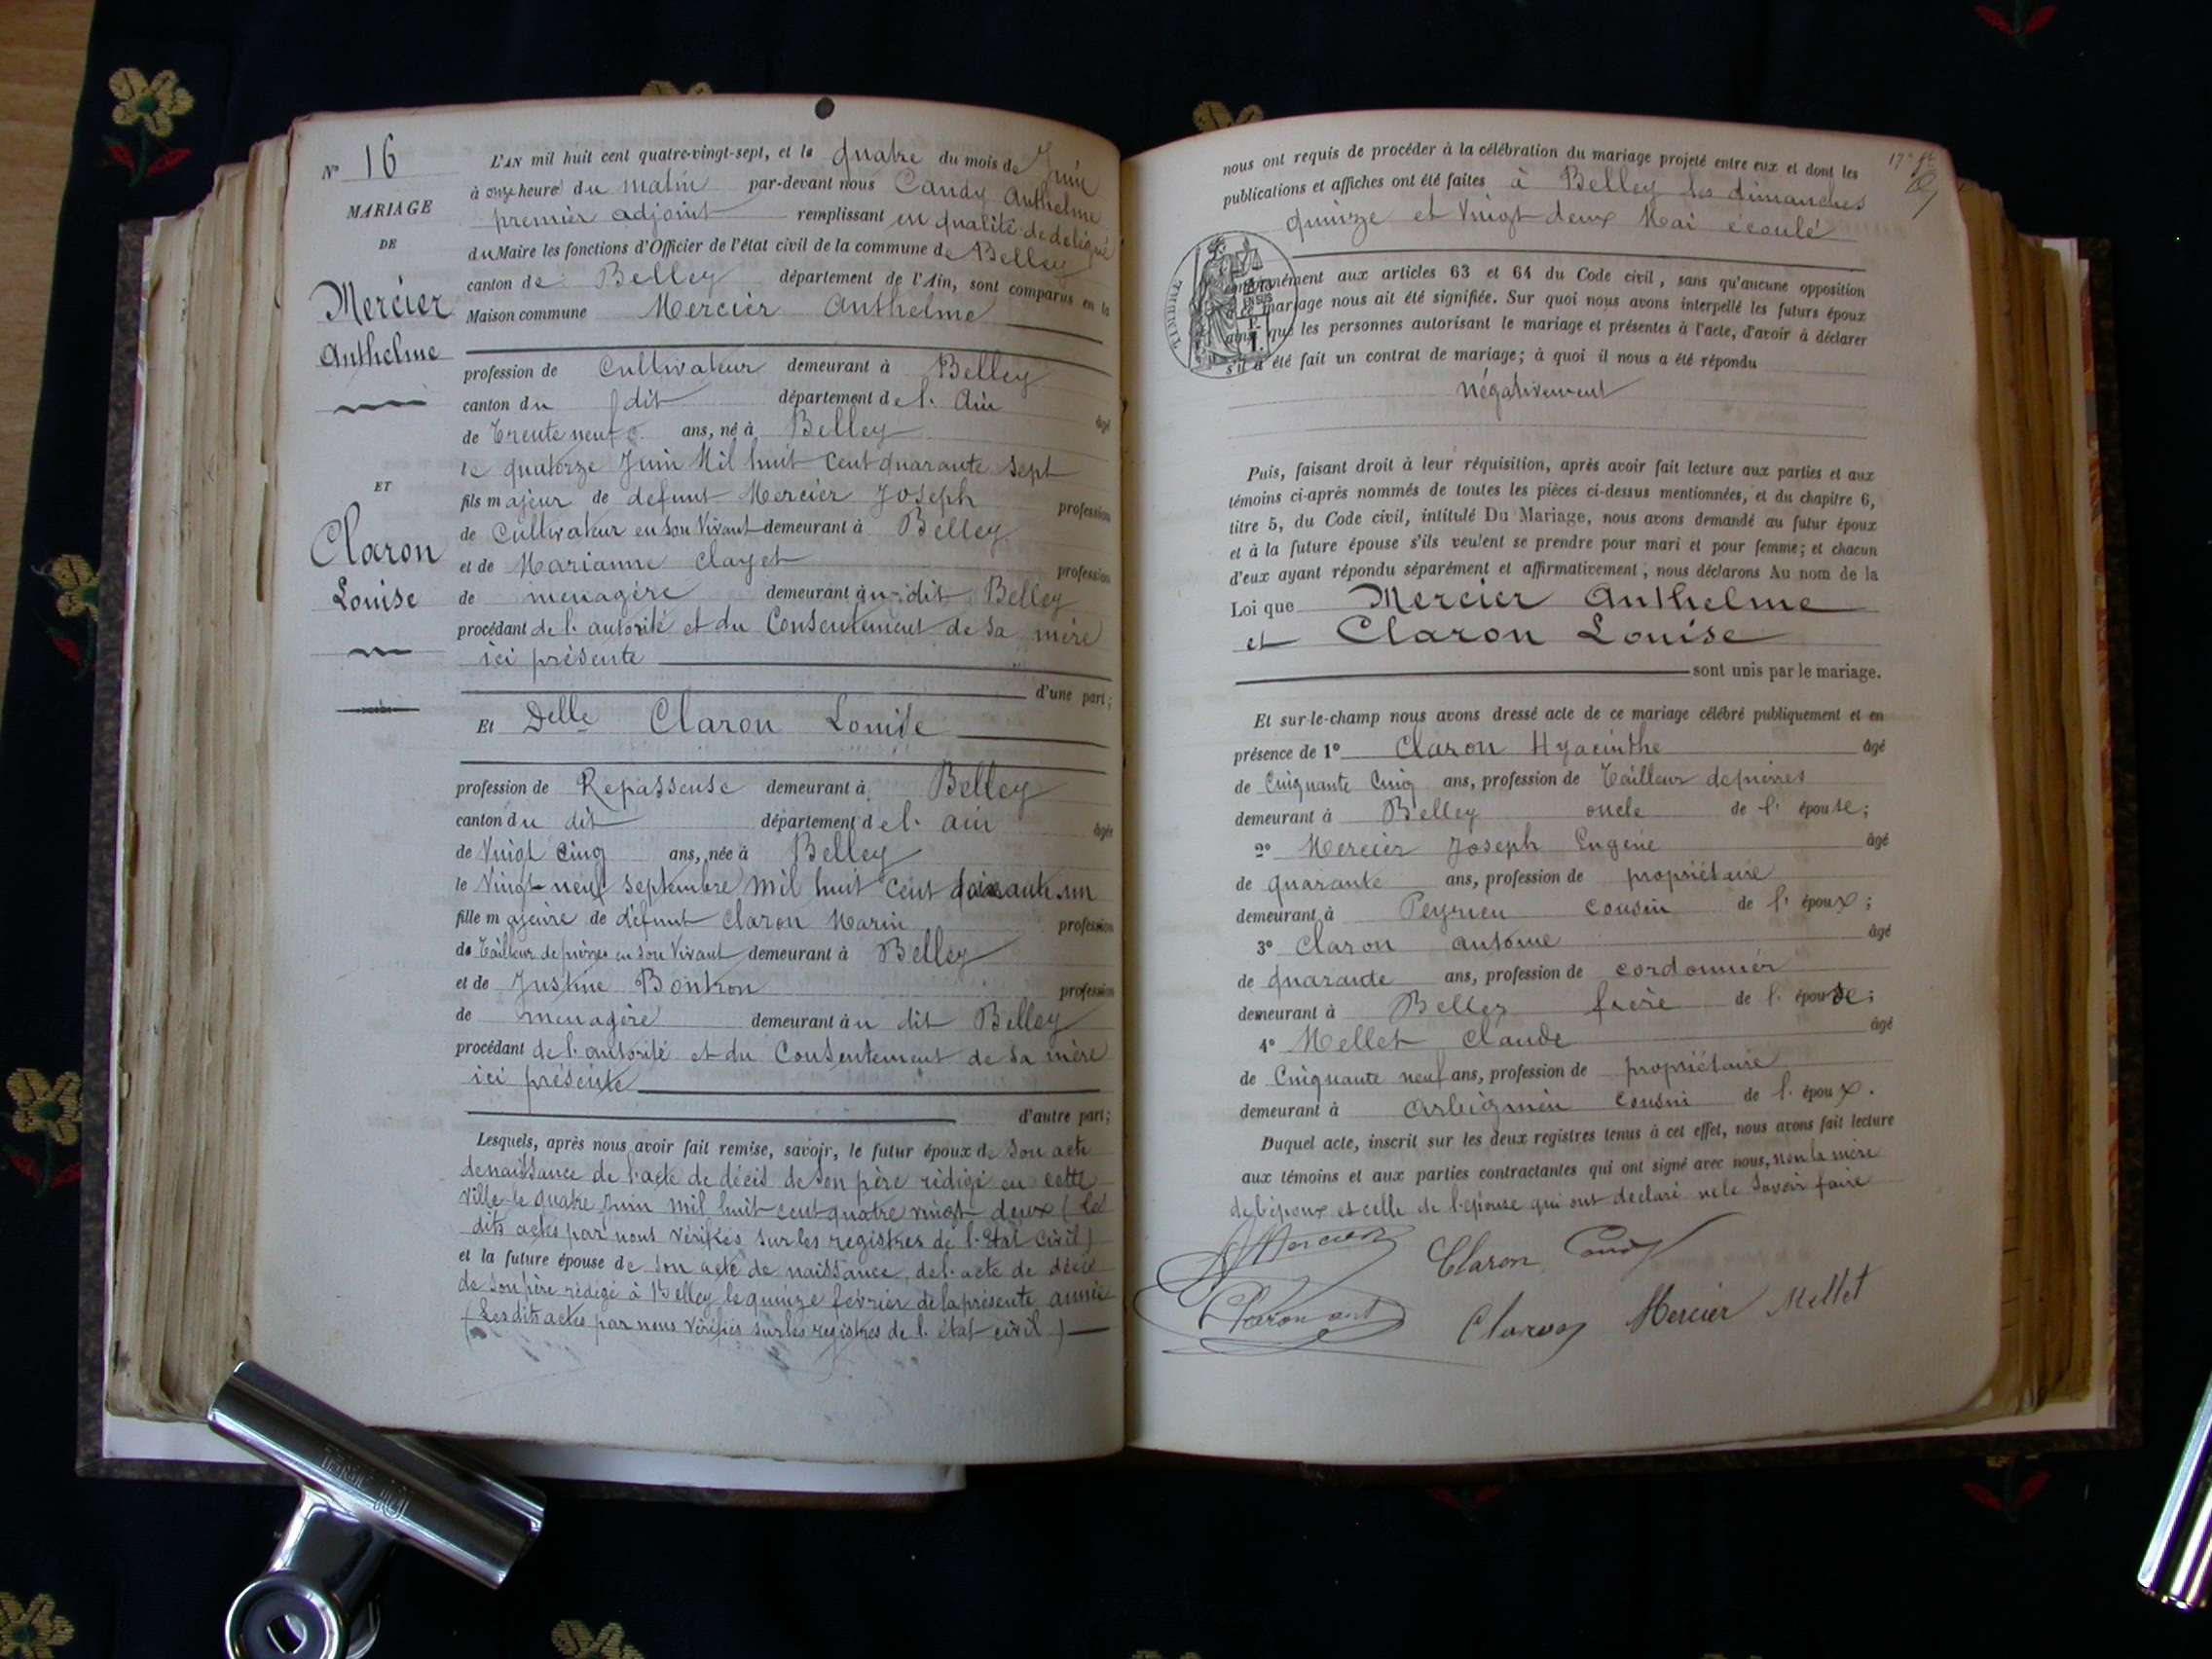 N° 16
MARIAGE
DE
Mercier
Anthelme
ET
Claron
Louise
L'AN mil huit cent quatre-vingt-sept, et le quatre du mois de Juin
à onze heures du matin par-devant nous Candy Anthelme
premier adjoint remplissant en qualité de délégué
du Maire les fonctions d'Officier de l'état civil de la commune de Belley
canton de Belley département de l'Ain, sont comparus en la
Maison commune Mercier Anthelme
profession de Cultivateur demeurant à Belley
canton du dit département de l'Ain
âgé
de Trente neuf ans, né à Belley
le quatorze Juin Mil huit cent quarante sept
fils majeur de défunt Mercier Joseph profession
de Cultivateur en son vivant demeurant à Belley
et de Marianne Clayet profession
de menagère demeurant au dit Belley
procédant de l'autorité et du Consentement de sa mère
ici présente
d'une part;
Et Delle Claron Louise
profession de Repasseuse demeurant à Belley
canton du dit département de l'ain âgée
de Vingt cinq ans, née à Belley
le Vingt-neuf septembre mil huit cent soixante un
fille majeure de défunt Claron Marin profession
de Tailleur de pierres en son Vivant demeurant à Belley
et de Justine Bontron profession
de menagère demeurant au dit Belley
procédant de l'autorité et du Consentement de sa mère
ici présente
d'autre part;
Lesquels, après nous avoir fait remise, savoir, le futur époux de son acte
de naissance de l'acte de décès de son père rédigé en cette
ville le quatre Juin mil huit cent quatre vingt deux (les
dits actes par nous vérifiés sur les registres de l'Etat civil)
et la future épouse de son acte de naissance, de l'acte de décès
de son père rédigé à Belley le quinze février de la présente année
(Les dits actes par nous vérifiés sur les registres de l'état civil)
nous ont requis de procéder à la célébration du mariage projeté entre eux et dont les
publications et affiches ont été faites à Belley les dimanches
quinze et vingt deux Mai écoulé
TIMBRE
conformément aux articles 63 et 64 du Code civil, sans qu'aucune opposition
à ce mariage nous ait été signifiée. Sur quoi nous avons interpellé les futurs époux
ainsi que les personnes autorisant le mariage et présentes à l'acte, d'avoir à déclarer
s'il a été fait un contrat de mariage; à quoi il nous a été répondu
négativement
Puis, faisant droit à leur réquisition, après avoir fait lecture aux parties et aux
témoins ci-après nommés de toutes les pièces ci-dessus mentionnées, et du chapitre 6,
titre 5, du Code civil, intitulé Du Mariage, nous avons demandé au futur époux
et à la future épouse s'ils veulent se prendre pour mari et pour femme; et chacun
d'eux ayant répondu séparément et affirmativement, nous déclarons Au nom de la
Loi que Mercier Anthelme
et Claron Louise
sont unis par le mariage.
Et sur-le-champ nous avons dressé acte de ce mariage célébré publiquement et en
présence de 1° Claron Hyacinthe âgé
de Cinquante Cinq ans, profession de Tailleur de pierres
demeurant à Belley oncle de l'épouse;
2° Mercier Joseph Eugène âgé
de quarante ans, profession de propriétaire
demeurant à Peyrieu cousin de l'époux;
3° Claron antoine âgé
de quarante ans, profession de cordonnier
demeurant à Belley frère de l'épouse;
4° Mellet Claude âgé
de Cinquante neuf ans, profession de propriétaire
demeurant à Arbignieu cousin de l'époux.
Duquel acte, inscrit sur les deux registres tenus à cet effet, nous avons fait lecture
aux témoins et aux parties contractantes qui ont signé avec nous, non la mère
de l'époux et celle de l'épouse qui ont déclaré ne le savoir faire
Mercier Claron Candy
Claron ant Claron Mercier Mellet